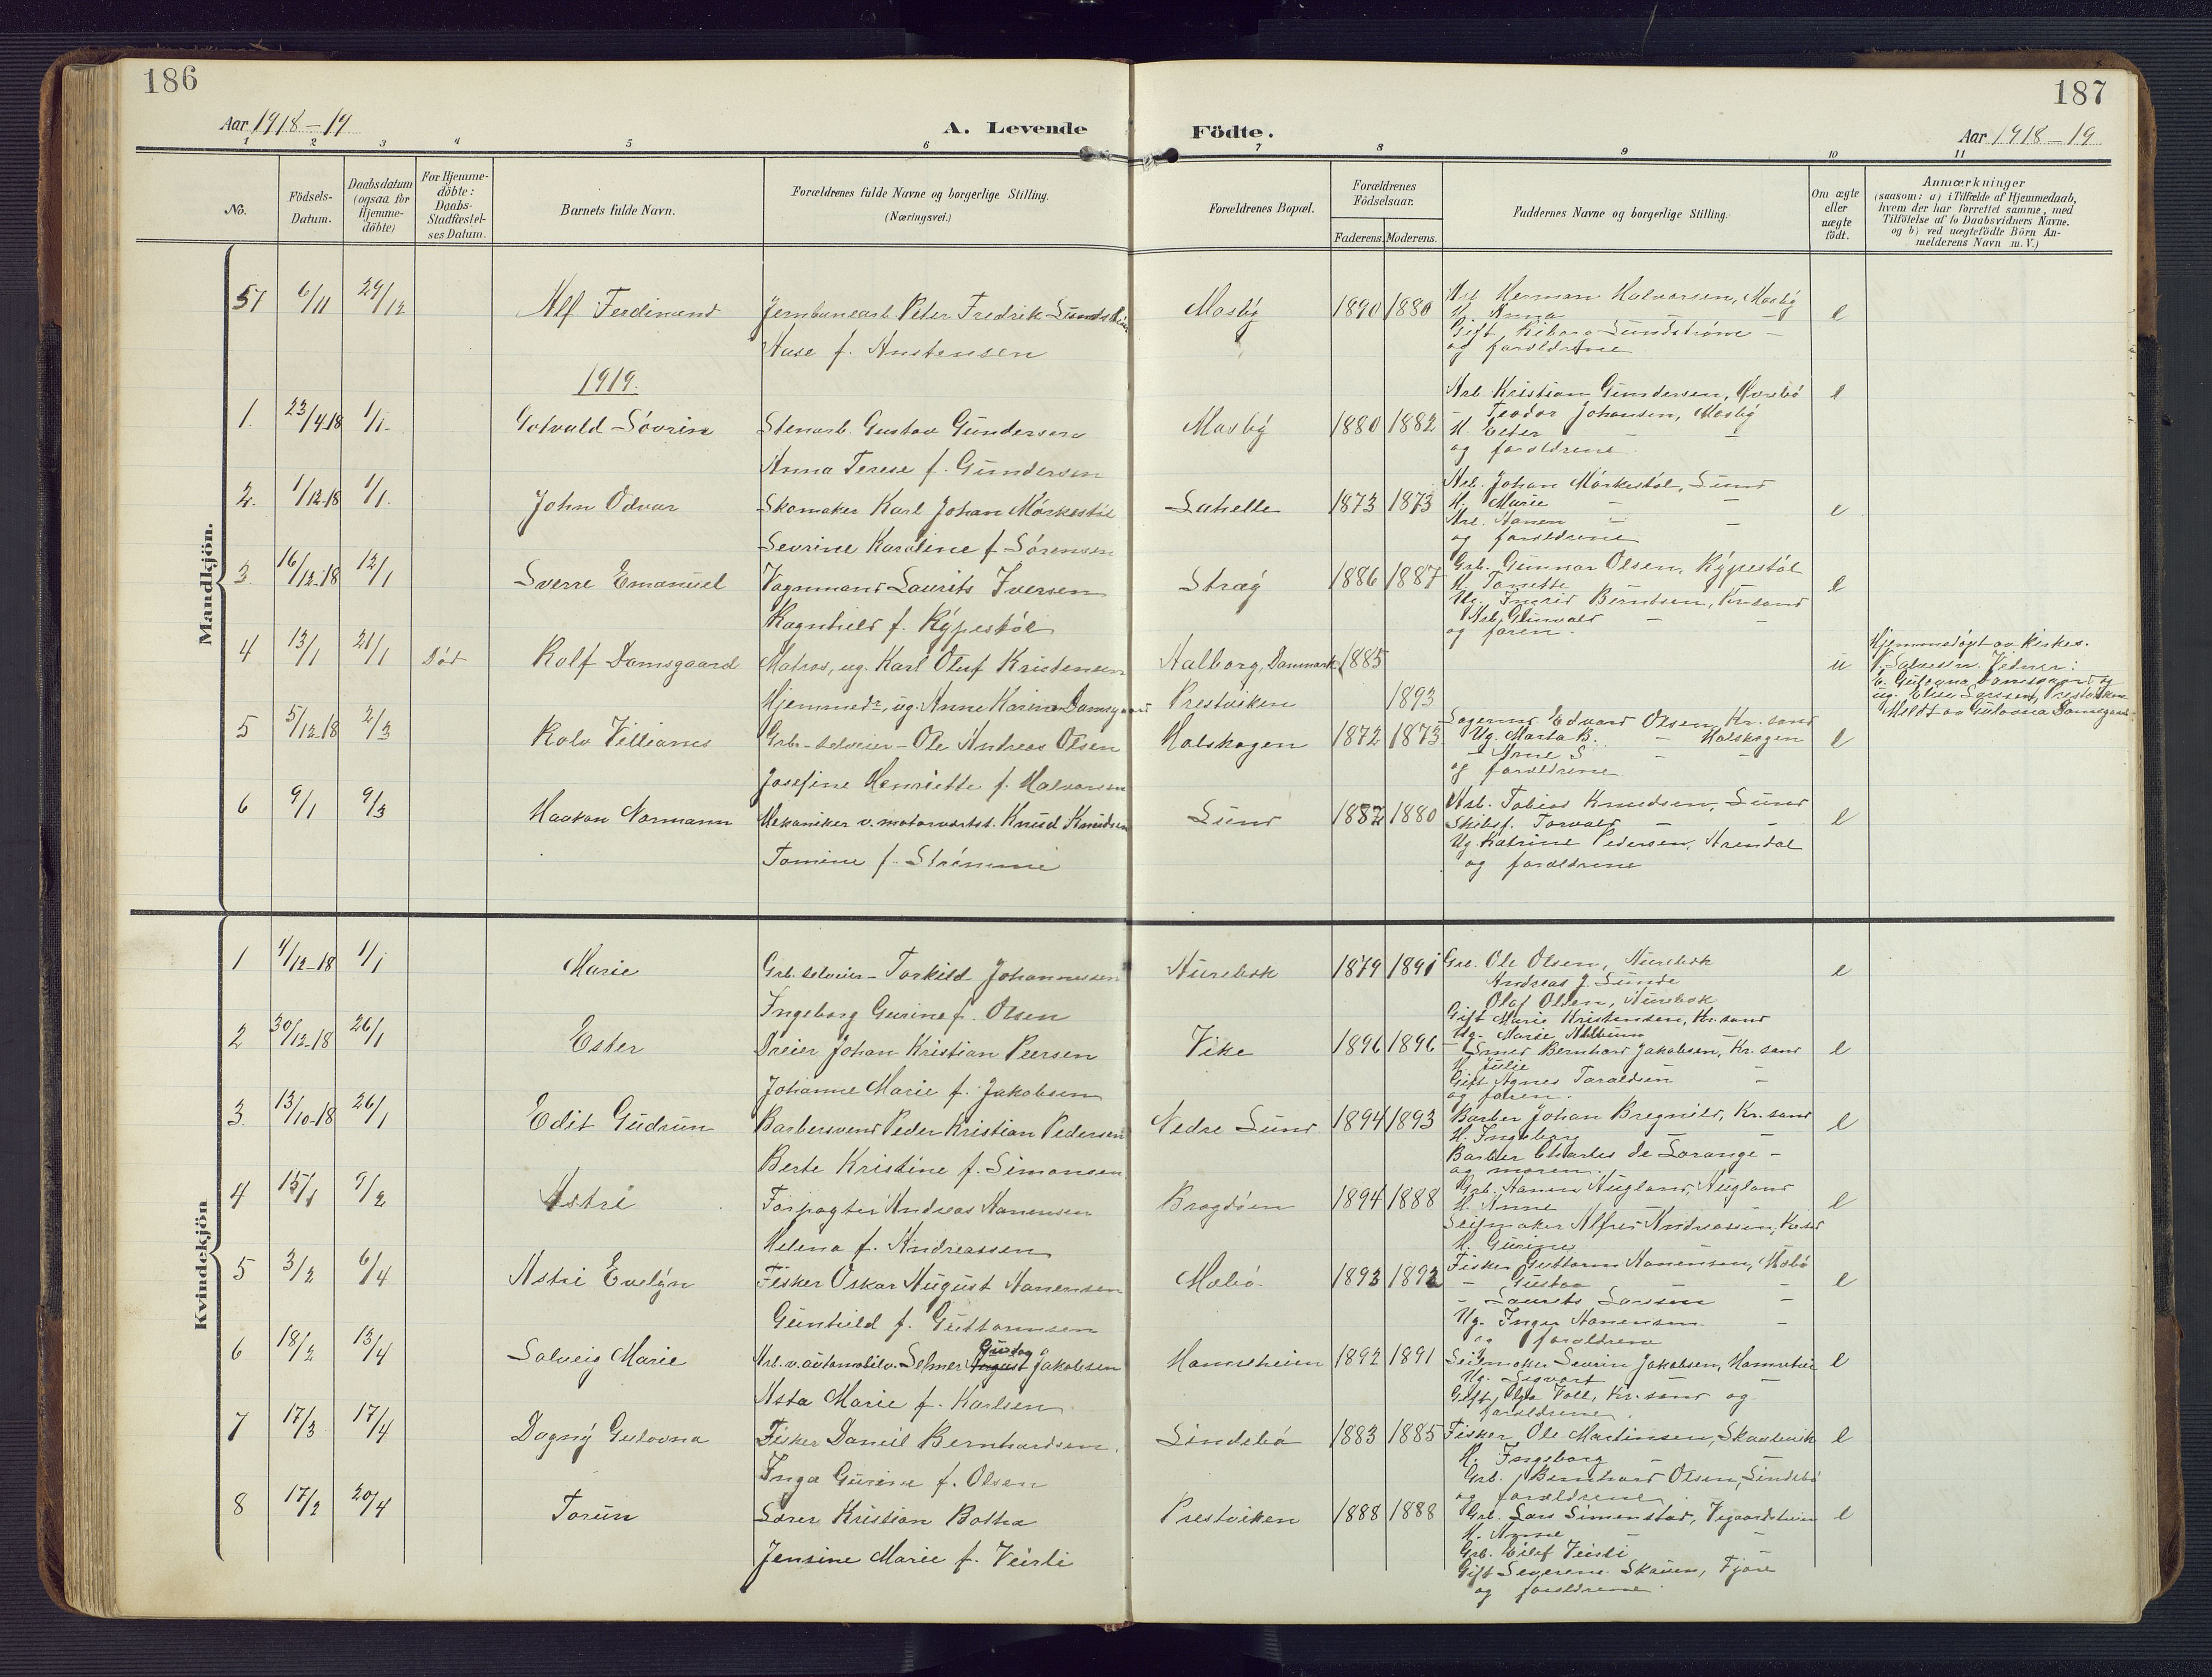 186
187
Aar 1918-19
A. Levende
Födte.
Aar 1918-19
1 2 3 4 5 6 7 8 9 10 11
No.
Födsels-
Datum.
Daabsdatum
(ogsaa for
Hjemme-
döbte)
For Hjemme-
döbte:
Daabs-
Stadfæstel-
ses Datum.
Barnets fulde Navn.
Forældrenes fulde Navne og borgerlige Stilling.
(Næringsvei.)
Forældrenes Bopæl.
Forældrenes
Födselsaar.
Faderens.
Moderens.
Faddernes Navne og borgerlige Stilling.
Om ægte
eller
uægte
födt.
Anmærkninger
(saasom: a) i Tilfælde af Hjemmedaab,
hvem der har forrettet samme, med
Tilföielse af to Daabsvidners Navne,
og b) ved uægtefödte Börn An-
melderens Navn m. V.)
Mandkjön.
51 6/11 29/12 Alf Ferdinand Jernbanearb. Peter Fredrik Mosby 1890 1880 e
Aase f. Anstensen
Arb. Herman Halvorsen, Mosby
H. Anna -
Gift Sundstrøm -
og forældrene
1919.
1. 23/4-18 1/1. Gotvald Søvrin Stenarb. Gustav Gundersen Mosby 1880 1882 e
Anna Terese f. Gundersen
Arb. Kristian Gundersen, Øvrebø
- Teodor Johansen, Mosby
H. Ester - -
og forældrene
2. 1/12-18 1/1. John Odvar Skomaker Karl Johan Mørkestøl Lahelle 1873 1873 e
Sevrine Karoline f. Sørensen
Arb. Johan Mørkestøl, Lund
H. Marie - -
Arb. Hanen - -
og forældrene
3. 16/12-18 12/1 Sverre Emanuel Vognmand Laurits Iversen Stray 1886 1887 e
Ragnhild f. Rypestøl
Grb. Gunnar Olsen, Rypestøl
H. Tomette
Ug. Ingrid Berntsen, Kr.sand
Arb. Gunvald - -
og faren.
4 13/1 21/1 Død Rolf Damsgaard Matros, ug. Karl Oluf Kristensen Aalborg, Danmark 1885 u
Hjemmedr., ug. Anne Karine Damsgaard Prestviken 1893
Hjemmedøpt av kirkes.
Vidner:
E. Gulovna Damsgaard og
ug. Elise Larssen, Prestviken
Meldt av Gulovna Damsgaard
5 5/12-18 2/3 Rolv Villianes Grb.-selveier - Ole Andreas Olsen Holskogen 1872 1873 e
Josefine Henriette f. Halvorsen
Edvard Olsen, Kr.sand
Ug. Marta B. - Holskogen
- Arne S. - -
og forældrene
6 9/1 9/3 Haakon Normann Mekaniker v. motorverkst. Knud Knudsen Lund 1887 1880 e
Tomine f. Strømme
Arb. Tobias Knudsen, Lund
Skibsf. Torvald - -
Ug. Katrine Pedersen, Arendal
og forældrene
Kvindekjön
1 4/12-18 1/1 Marie Grb. selveier - Torkild Johannesen Aurebek 1879 1891 e
Ingeborg Gurine f. Olsen
Grb. Ole Olsen, Aurebek
Andreas J. Sunde
Olaf Olsen, Aurebek
Gift Marie Kristensen, Kr.sand
Ug. Marie
2 30/12-18 26/1 Ester Dreier Johan Kristian Peersen Vike 1896 1896 e
Johanne Marie f. Jakobsen
Smed Bernhard Jakobsen, Kr.sand
H. Julie
Gift Agnes Taraldsen -
og faren.
3 13/10-18 26/1 Edit Gudrun Barbersvend Peder Kristian Pedersen Nedre Lund 1894 1893 e
Berte Kristine f. Simonsen
Barber Johan Bregnild, Kr.sand
H. Ingeborg
Barber Charles de Lorange -
og moren.
4 15/1 9/2 Astri Forpagter Andreas Hanensen Bragdøen 1894 1888 e
Helena f. Andreassen
Grb. Hanen Augland, Augland
H. Anne -
Seilmaker Alfred Andreassen, Kr.sd
H. Gurine -
5 3/2 6/4 Astri Evelyn Fisker Oskar August Hanensen Mæbø 1893 1892 e
Gunhild f. Guttormsen
Fisker Guttorm Hanensen, Mæbø
- Gustav - -
- Laurits Larssen -
Ug. Inga Hanensen -
og forældrene
6 18/2 13/4 Solveig Marie Arb. v. automobilv. Selmer August Gustav Jakobsen Hamreheien 1892 1891 e
Asta Marie f. Karlsen
Seilmaker Sevrin Jakobsen, Hamreheia
Ug. Sigvart - -
Gift Olga Voll, Kr.sand og
forældrene.
7 17/3 17/4 Dagny Gulovna Fisker Daniel Bernhardsen Lindebø 1883 1885 e
Inga Gurine f. Olsen
Fisker Ole Martinsen, Skaalevik
H. Ingeborg - -
Grb. Bernhard Olsen, Lindebø
og forældrene
8 17/2 20/4 Torun Lærer Kristian Botha Prestviken 1888 1888 e
Jensine Marie f. Veirli
Grb. Lars Simenstad, Vegaardsheien
H. Anne - -
Grb. Eilef Veisti -
Gift Severene Skauen, Fjære
og forældrene.